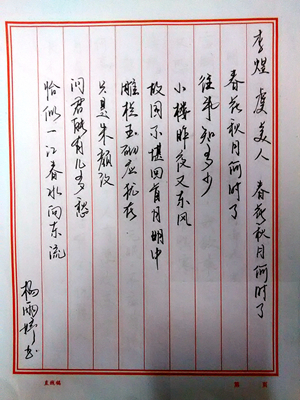 李煜 虞美人 春花秋月何时了
春花秋月何时了
往事知多少
小楼昨夜又东风
故国不堪回首月明中
雕栏玉砌应犹在
只是朱颜改
问君能有几多愁
恰似一江春水向东流
杨雨婷书